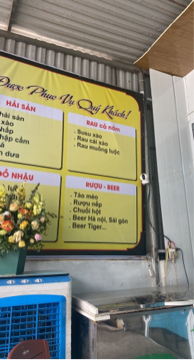 Được Phục Vụ Quý Khách!
HẢI SẢN
hải sản
xào
hấp
hập cẩm
dưa
RAU CỎ NẤM
. Susu xào
. Rau cải xào
. Rau muống luộc
ĐỒ NHẬU
RƯỢU - BEER
. Táo mèo
. Rượu nếp
. Chuối hột
. Beer Hà nội, Sài gòn
. Beer Tiger...